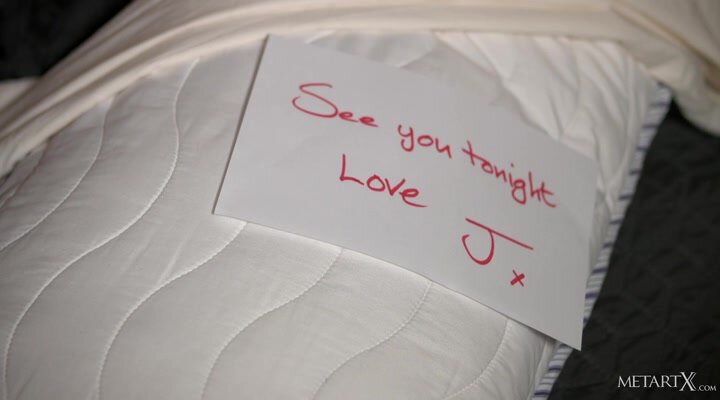 See you tonight
Love
J x
METARTX.COM